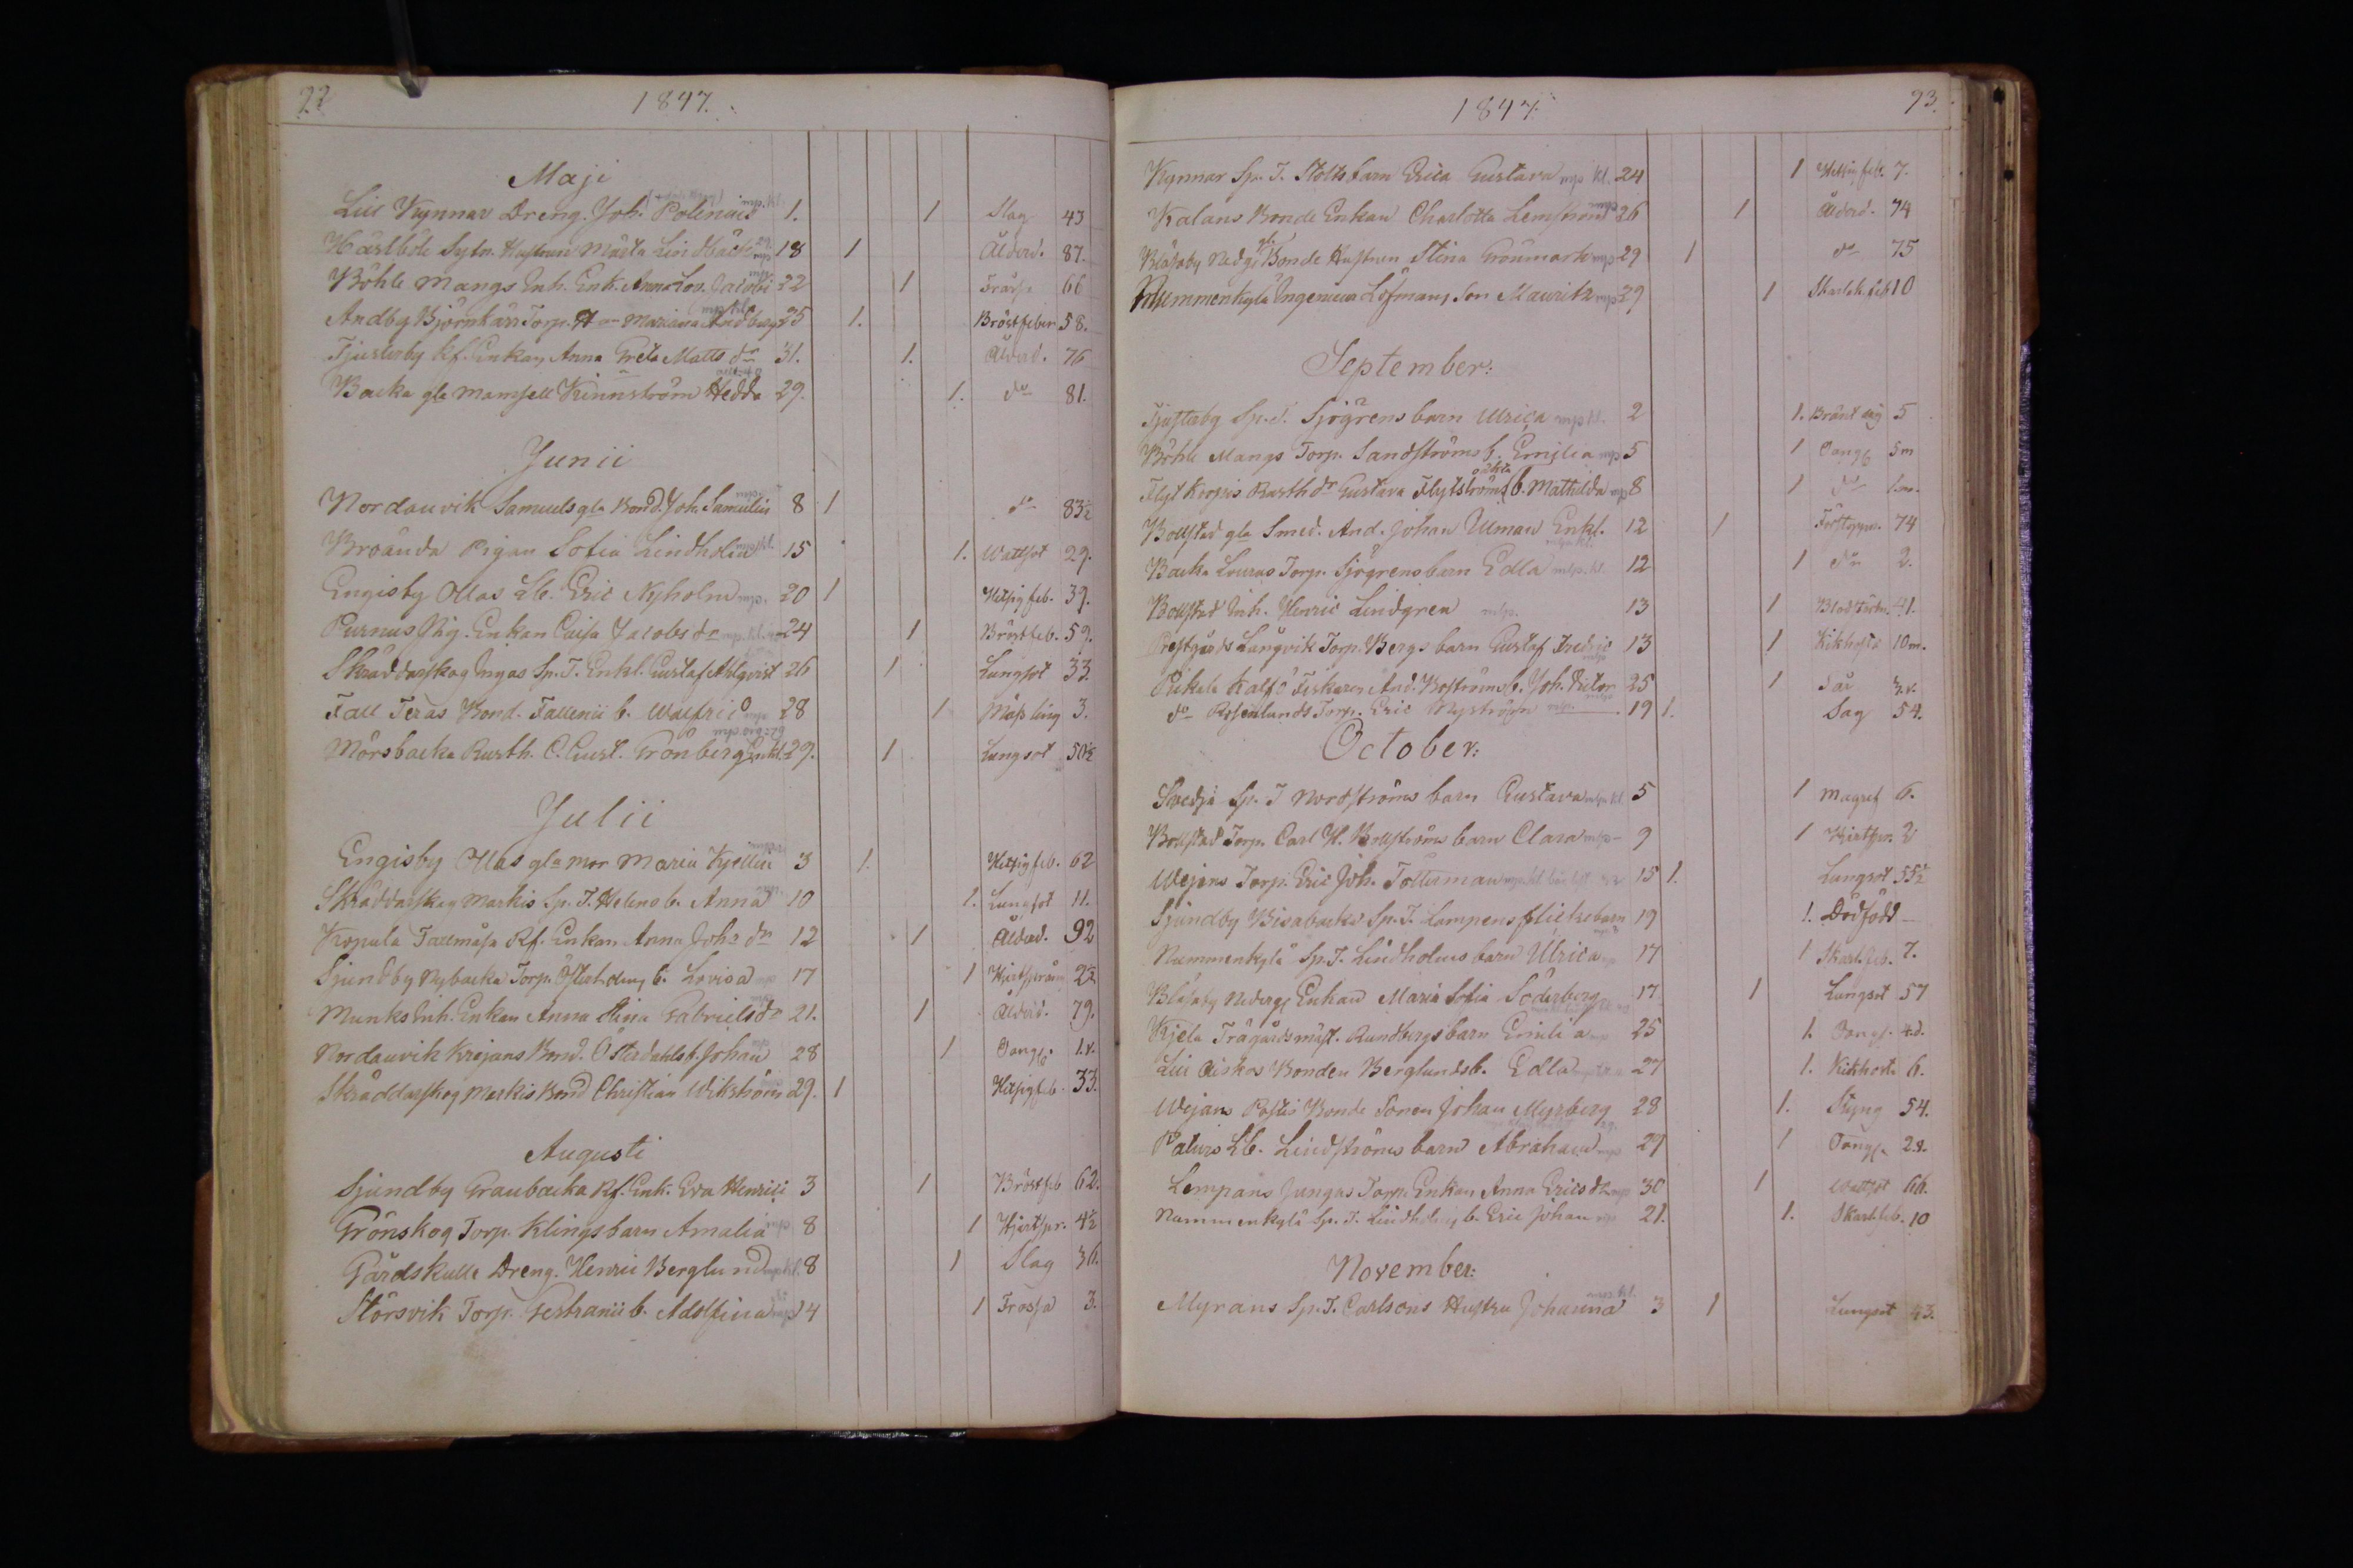 22 1847.
Maji
Lill Kynnar Dreng. Joh. Polenius mp. kl. 1. 1 Slag 43
Härlböle Sytn. Hustrun Märta Lindbäck mp 18 1 Ålderd. 87.
Böhle Mangs Inh. Enk. Anna Lov. Jacobi mp. 22 1 Frässa 66
Andby Björnkärr Torp. H Mariana Andberg mp kl. 25 1. Bröstfeber 58.
Tjusterby Rf. Enkan Anna Greta Matts dr 31. 1. Ålderd. 76
Backa gla Mamsell Kinnström Hedda 29. 1. do 81.
Junii
Nordanvik Samuels gla Bond. Joh. Samulin 8 1 do 83½
Broända Pigan Sofia Lindholm mp kl. 15 1. Wattsot 29.
Engisby Ollas Lb. Eric Nyholm mp. 20 1 Hetsig feb. 39.
Purnus Nig. Enkan Caisa Jacobs dr mp. kl. 24 1 Bröstfeb. 59.
Skräddarskog Ingas Sp. T. Enkl. Gustaf Ahlqvist 26 1 Lungsot 33.
Fall Teras Bond. Fallenii b. Walfrid mp 28 1 Mässling 3.
Mörsbacka Rusth. C. Gust. Grönberg Enkl. 29. 1 Lungsot 50½
Julii
Engisby Ollas gla mor Maria Kjellin 3 1. Hetsig feb. 62
Skräddarskog Markis Sp. T. Helens b. Anna 10 1. Lungsot 11.
Kopula Tallmåsa Rf. Enkan Anna Johs dr 12 1 Ålderd. 92
Sjundby Nybacka Torp. Österholms b. Lovisa mp 17 1 Hjertsprång 2½
Munks Inh. Enkan Anna Stina Gabriels dr 21. 1 Ålderd. 79.
Nordanvik Krejans Bond. Österdahls b. Johan 28 1 Oangs. 1.v.
Skräddarskog Markis Bond Christian Wikström 29. 1 Hetsig feb. 33.
Augusti
Sjundby Graubacka Rf. Enk. Eva Henrici 3 1 Bröstfeb 62.
Grönskog Torp. Klings barn Amalia mp 8 1 Hjertspr. 4½
Gårdskulle Dreng. Henric Berglund mp kl. 8 1 Slag 36.
Störsvik Torp. b. Adolfina mp 14 1 Frossa 3.
1847. 93.
Kynnar Sp. T. Stolts barn Erica Gustava mp kl. 24 1 Hetsig feb. 7.
Kalans Bonde Enkan Charlotta Lemström mp 26 1 Ålderd. 74
Blåsaby Nedgs gla Bonde Hustrun Stina Grönmark mp 29 1 do 75
Nummenkylä Ingenieur Löfmans Son Mauritz mp 29 1 Skarlak. feb 10
September:
Tjusterby Sp. T. Sjögrens barn Ulrica mp kl. 2 1. Bränt sig 5
Böhle Mangs Torp. Sandströms b. Emilia mp 5 1 Oangs 5 m
Flyt Kropis Rusth dr Gustava Flytströms oäkta b. Mathilda mp 8 1 do 1. m.
Bollstad gla Smed. And. Johan Ulman Enkl. 12 1 74
Backa Louras Torp. Sjögrens barn Edla mp. kl. 12 1 do 2.
Bollstad Inh. Henric Lindgren mp. 13 1 Blodstörtn. 41.
Prestgårds Långvik Torp. Bergs barn Gustaf Fredric 13 1 Kikhosta 10 m.
Pickala Kalfö Fiskaren And. Boströms b. Joh. Victor 25 1 3. v.
do Rosenlunds Torp. Eric Nyström mp. 19 1. 54.
October:
Svedja Sp. T Nordströms barn Gustava mp. kl 5 1 Magref 6.
Bollstad Torp. Carl H. Bollströms barn Clara mp 9 1 Hjertspr. 2
Wejans Torp. Eric Joh. Totterman 15 1. Lungsot 55½
Sjundby Bisabacka Sp. T. Lampens flickebarn 19 1. Dödfödd
Nummenkylä Sp. T. Lindholms barn Ulrica mp 17 1 Skarl. feb. 7.
Blåsaby Nedergs Enkan Maria Sofia Söderberg 17 1 Lungsot 57
Kjela Trägårdsmäst. Rundbergs barn Emilia mp 25 1. Oangs. 4. d.
Lill Bonden Berglunds b. Edla 27 1. Kikhost. 6.
Wejans Postis Bonde Sonen Johan Myrberg 28 1. Styng 54.
Palurs Lb. Lindströms barn Abraham mp 29 1 Oangs.
Lempans Jungas Torp. Enkan Anna Erics dr mp 30 1 Wattsot 66.
Nummenkylä Sp. T. Lindholms b. Eric Johan mp 21. 1. Skarl. feb. 10
November:
Myrans Sp. T. Carlsons Hustru Johanna mp. kl. 3 1 Lungsot 43.